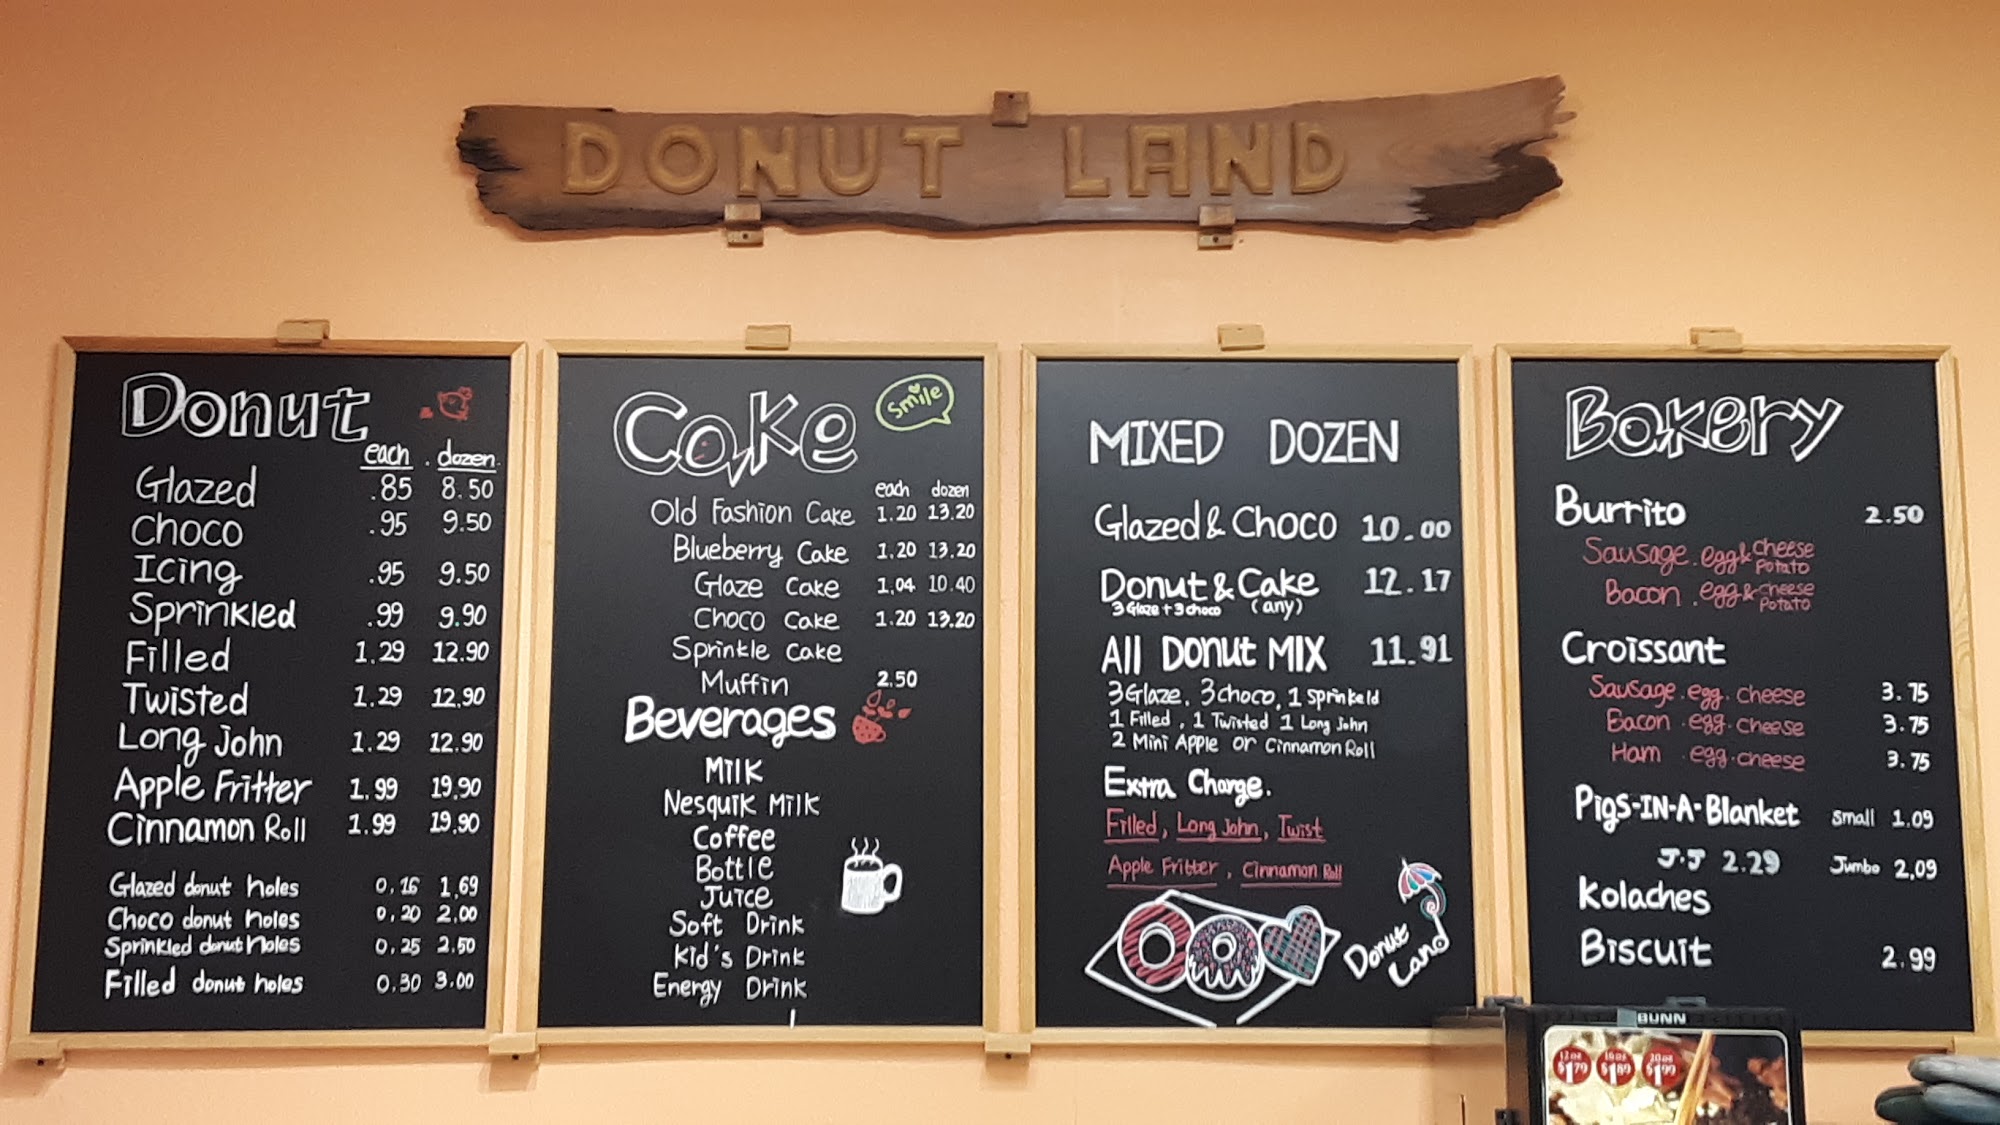 DONUT LAND
Donut
each . dozen
Glazed .85 8.50
Choco .95 9.50
Icing .95 9.50
Sprinkled .99 9.90
Filled 1.29 12.90
Twisted 1.29 12.90
Long John 1.29 12.90
Apple Fritter 1.99 19.90
Cinnamon Roll 1.99 19.90
Glazed donut holes 0.16 1.69
Choco donut holes 0.20 2.00
Sprinkled donut holes 0.25 2.50
Filled donut holes 0.30 3.00
Cake
smile
each dozen
Old Fashion Cake 1.20 13.20
Blueberry Cake 1.20 13.20
Glaze Cake 1.04 10.40
Choco Cake 1.20 13.20
Sprinkle Cake
Muffin 2.50
Beverages
Milk
Nesquik Milk
Coffee
Bottle
Juice
Soft Drink
Kid's Drink
Energy Drink
MIXED DOZEN
Glazed & Choco 10.00
Donut & Cake 12.17
3 Glaze + 3 choco (any)
All Donut MIX 11.91
3 Glaze, 3 choco, 1 Sprinkeld
1 Filled, 1 Twisted 1 Long John
2 Mini Apple or Cinnamon Roll
Extra Charge.
Filled, Long John, Twist
Apple Fritter, Cinnamon Roll
Donut
Land
Bakery
Burrito 2.50
Sausage. egg & cheese
potato
Bacon. egg & cheese
potato
Croissant
Sausage. egg. cheese 3.75
Bacon. egg. cheese 3.75
Ham. egg. cheese 3.75
Pigs-IN-A-Blanket small 1.09
J.J 2.29 Jumbo 2.09
Kolaches
Biscuit 2.99
BUNN
12 oz 16 oz 20 oz
$1.79 $1.89 $1.99